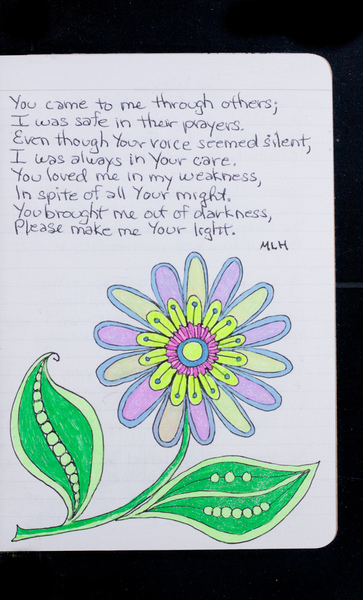 You came to me through others;
I was safe in their prayers.
Even though Your voice seemed silent,
I was always in Your care.
You loved me in my weakness,
In spite of all Your might.
You brought me out of darkness,
Please make me Your light.
MLH